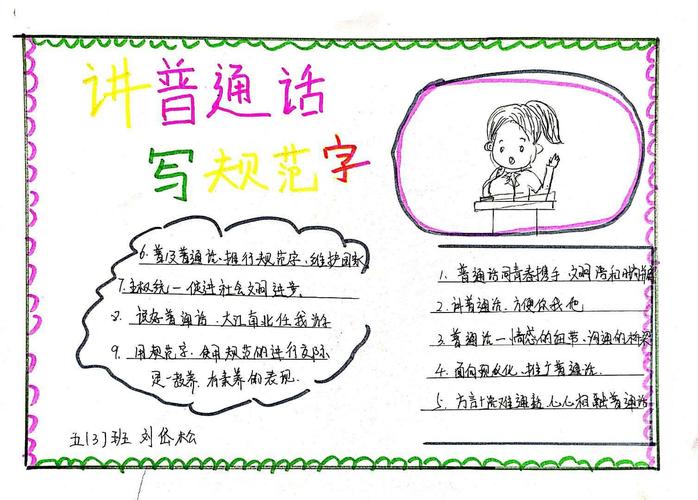 讲普通话
写规范字
6. 普及普通话、推行规范字、维护国家
7. 主权统一 促进社会文明进步
8. 说好普通话 大江南北任我游
9. 用规范字、使用规范的进行交际
是一教养、有素养的表现.
1. 普通话同青春携手 文明语和时尚
2. 讲普通话、方便你我他
3. 普通话一情感的纽带、沟通的桥梁
4. 面向现代化、推广普通话.
5. 方言十里难通越 心心相融普通话
五(3)班 刘岱松